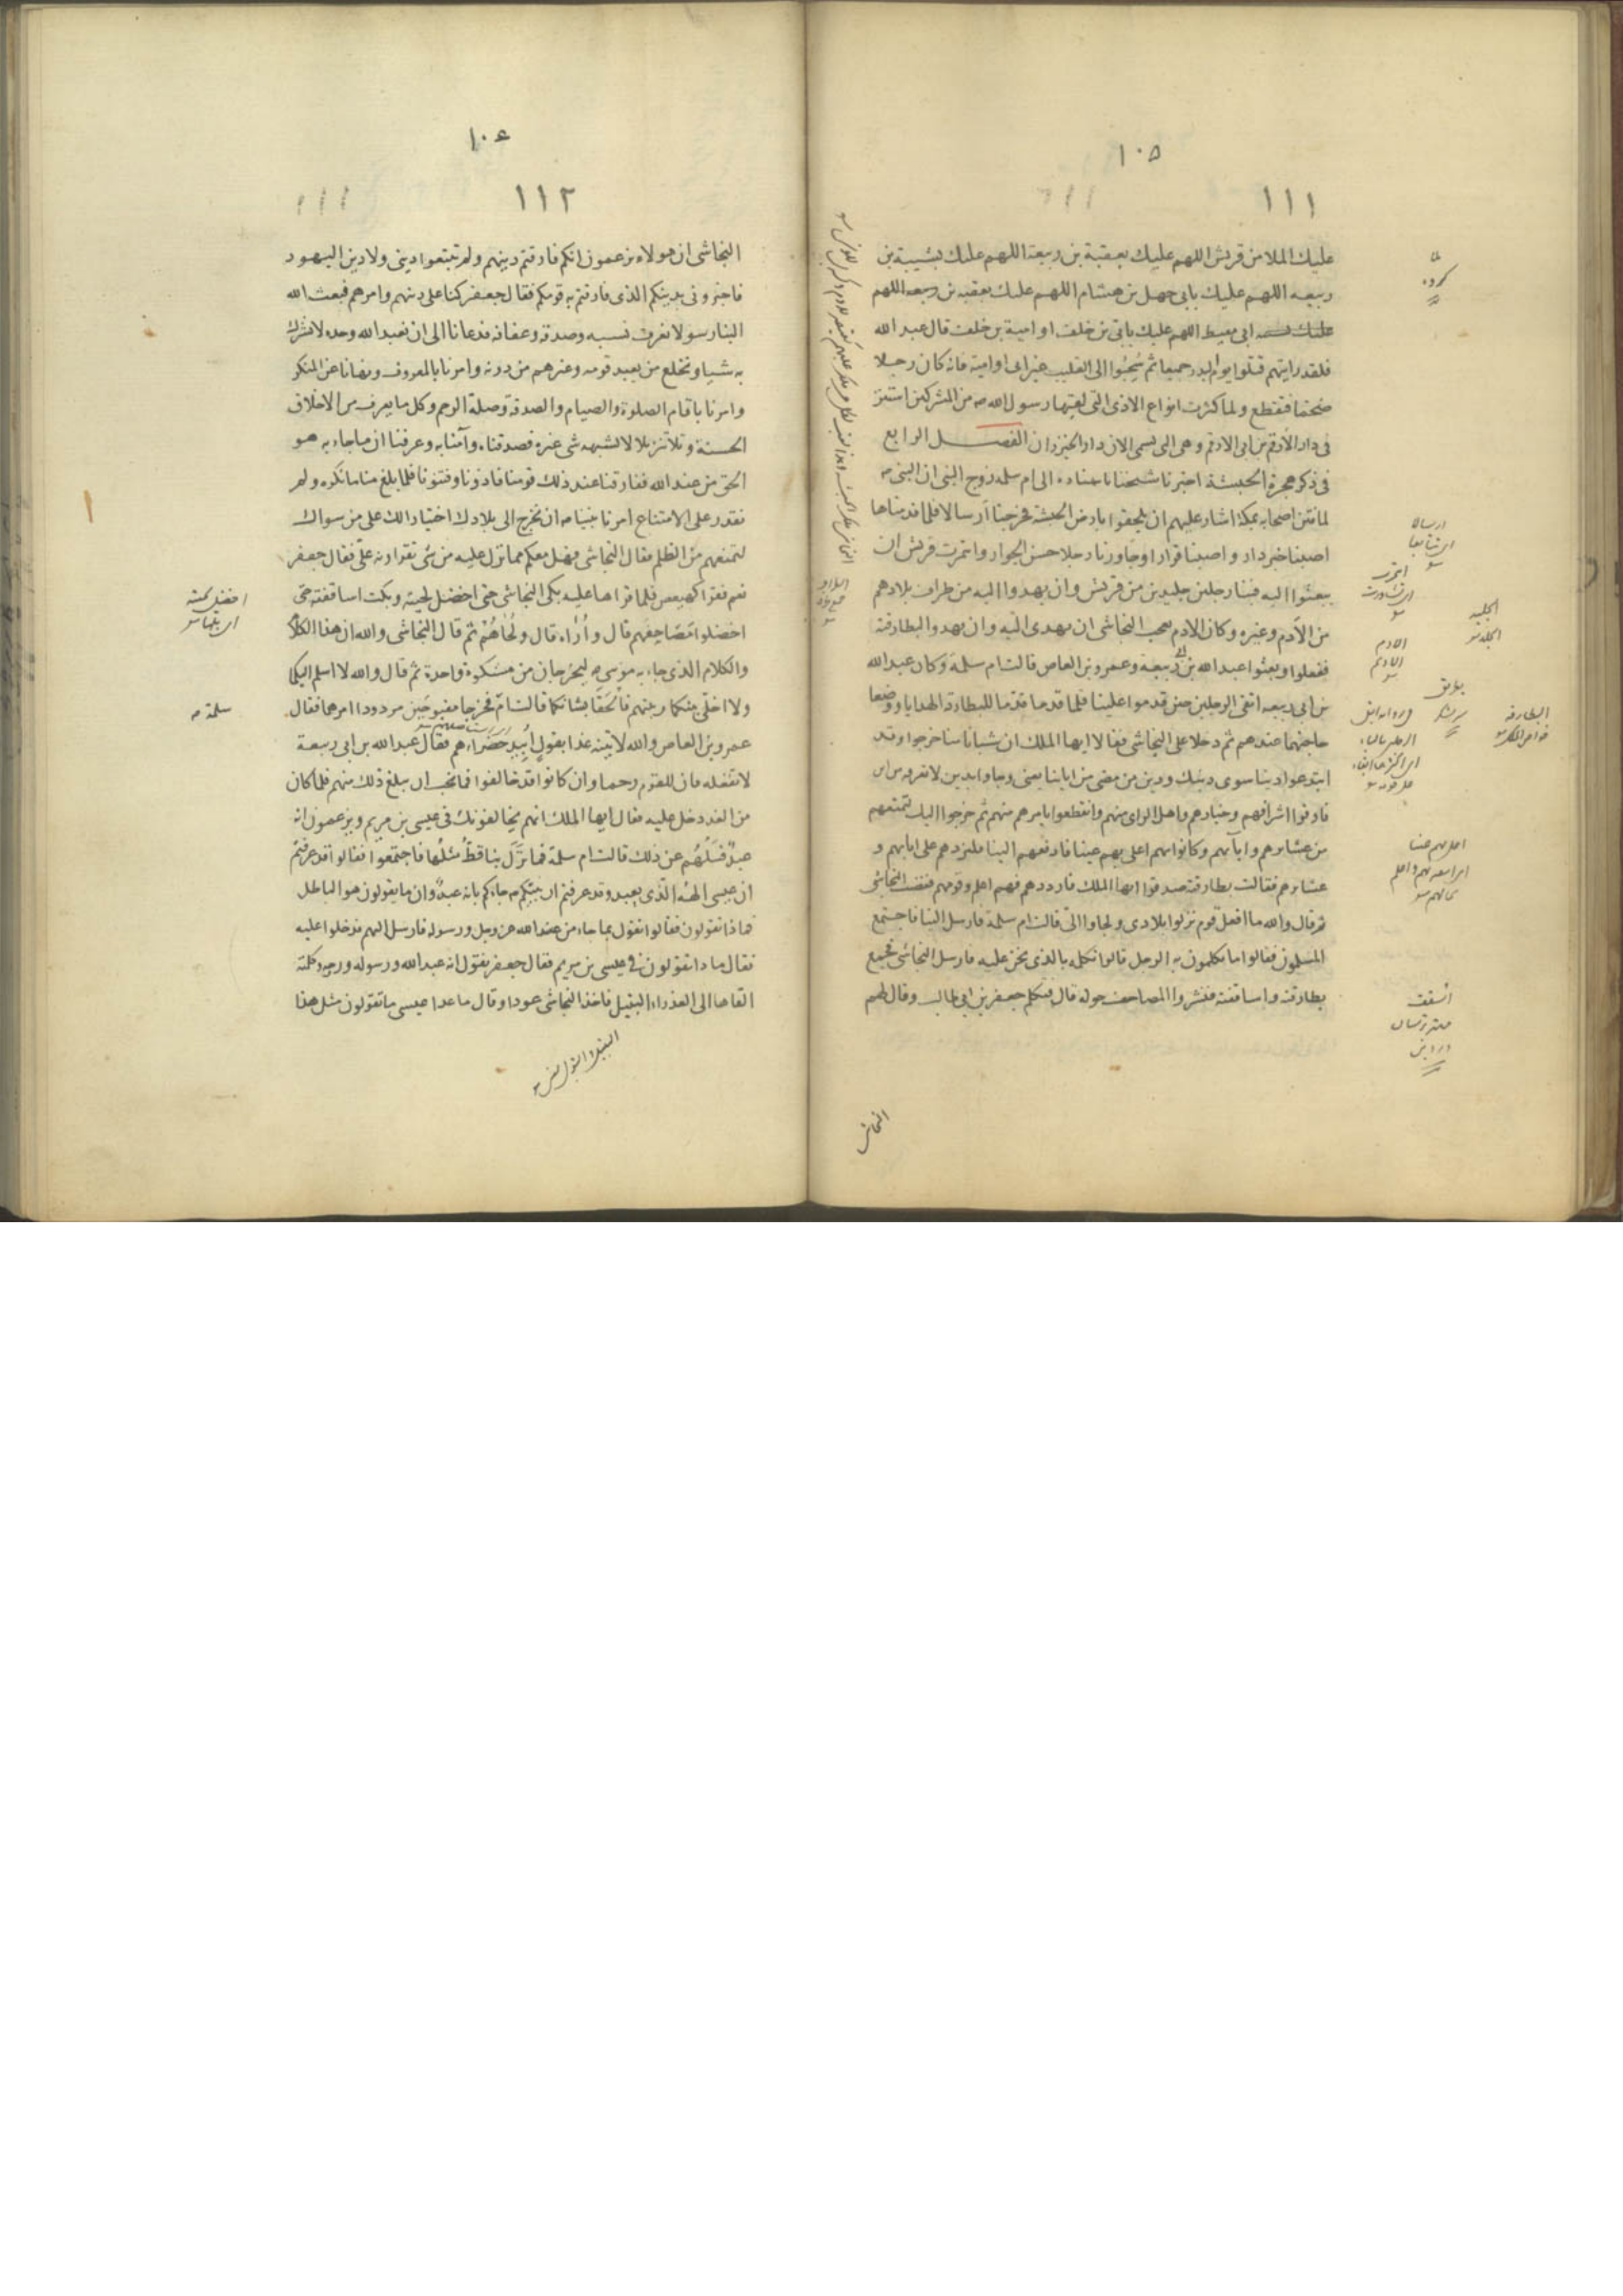 ١٠٥
١١١
عليك الملا من قريش اللهم عليك بعقبة بن ربيعة اللهم عليك بشيبة بن
ربيعه اللهم عليك بابى جهل بن هشام اللهم عليك بعقبه بن ربيعه اللهم
عليك ابى معيط اللهم عليك بابى بن خلف او امية بن خلف قال عبد الله
فلقد رايتهم قتلوا يوم البدر جميعا ثم سُحِبُوا الى القليب غير ابى او امية فانه كان رجلا
ضخما فتقطع ولما كثرت انواع الاذى التى لقيها رسول الله صه من المشركين استتر
فى دار الارقم بن ابى الارقم وهى التى تسمى الان دار الخيزران الفصل الرابع
فى ذكر هجرة الحبشة اخبرنا شيخنا باسناده الى ام سلمه زوج النبى ان النبى صه
لما فتن اصحابه بمكة اشار عليهم ان يلحقوا بارض الحبشة فخرجنا أرسالا فلما قدمناها
اصبنا خير دار واصبنا قرارا وجاورنا رجلا حسن الجوار وائتمرت قريش ان
يبعثوا اليه فينا رجلين جليدين من قريش وان يهدوا اليه من طراف بلادهم
من الأدم وغيره وكان الادم يعجب النجاشى ان يهدى اليه وان يهدوا لبطارقته
ففعلوا وبعثوا عبد الله بن ابى ربيعة وعمرو بن العاص قالت ام سلمة وكان عبد الله
بن ابى ربيعه اتقى الرجلين حين قدموا علينا فلما قدما قدّما للبطارقة الهدايا ووضعا
حاجتهما عندهم ثم دخلا على النجاشى فقالا ايها الملك ان شبانا منا خرجوا وقد
ابتدعوا دينا سوى دينك ودين من مضى من ابائنا يعنى وجاوا بدين لا نعرفه
فارقوا اشرافهم وخيارهم واهل الراى منهم وانقطعوا بامرهم منهم ثم خرجوا اليك لتمنعهم
من عشائرهم وابائهم وكانوا هم اعلى بهم عينا فادفعهم الينا فلنردهم على ابائهم و
عشائرهم فقالت بطارقته صدقوا ايها الملك فارددهم فهم اعلم وقومهم فغضب النجاشى
ثم قال والله ما افعل قوم نزلوا بلادى ولجاوا الىّ قالت ام سلمة فارسل الينا فاجتمع
المسلمون فقالوا ما تكلمون به الرجل قالوا نكلمه بالذى نحن عليه فارسل النجاشى فجمع
بطارقته واساقفته فنشروا المصاحف حوله قال فتكلم جعفر بن ابى طالب وقال لهم
النجاشى
ارسالا
اى تتابعا
الجليد
الجلد
الادم
البطارقه
اسقف
١٠٤
١١٢
النجاشى ان هولاء يزعمون انكم فارقتم دينهم ولم تتبعوا دينى ولا دين اليهود
فاخبرونى بدينكم الذى فارقتم به قومكم فقال جعفر كنا على دينهم وامرهم فبعث الله
الينا رسولا نعرف نسبه وصدقه وعفافه فدعانا الى ان نعبد الله وحده لا نشرك
به شيا ونخلع من يعبد قومه وغيرهم من دونه وامرنا بالمعروف ونهانا عن المنكر
وامرنا باقام الصلوة والصيام والصدقة وصلة الرحم وكل ما يعرف من الاخلاق
الحسنة وتلا تنزيلا لا تشبهه شى غيره فصدقناه وآمنا به وعرفنا ان ما جاء به هو
الحق من عند الله ففارقنا عند ذلك قومنا فاذونا وفتنونا فلما بلغ منا ما نكره ولم
نقدر على الامتناع امرنا نبينا صه ان نخرج الى بلادك اختيارا لك على من سواك
لتمنعهم من الظلم فقال النجاشى فهل معكم مما نزل عليه من شى تقراونه علىّ فقال جعفر
نعم فقرا كهيعص فلما قراها عليه بكى النجاشى حتى اخضل لحيته وبكت اساقفته حتى
اخضلوا مَصَاحِفهم قال وأُرَاه قال ولُحَاهُمْ ثم قال النجاشى والله ان هذا الكلام
والكلام الذى جاء به موسى ليخرجان من مشكوة واحدة ثم قال والله لا اسلم اليكما
ولا اخلّى بينكما وبينهم فالحقا بشانكما قالت ام فخرجا مقبوحَين مردودا امرهما فقال
عمرو بن العاص والله لآتينه غدا بقولٍ اُبِيدُ خَضْرَاءهم فقال عبد الله بن ابى ربيعة
لا تفعله فان للقوم رحما وان كانوا قد خالفوا فما نحب ان يبلغ ذلك منهم فلما كان
من الغد دخل عليه فقال ايها الملك انهم يخالفونك فى عيسى بن مريم ويزعمون انه
عبدٌ فَسَلْهُم عن ذلك قالت ام سلمة فما نزَل بنا قطُّ مثلُها فاجتمعوا فقالوا قد عرفتم
ان عيسى الهُه الّذى يعبد وقد عرفتم ان نبيّكم صه جاءكم بانه عبدٌ وان ما يقولون هو الباطل
فماذا تقولون فقالوا نقول بما جاء من عند الله عز وجل ورسوله فارسل اليهم فدخلوا عليه
فقال ما ذا تقولون فى عيسى بن مريم فقال جعفر نقول انه عبد الله ورسوله وروحه وكلمته
القاها الى العذراء البتيل فاخذ النجاشى عودا وقال ما عدا عيسى ما تقولون مثل هذا
سلمة صه